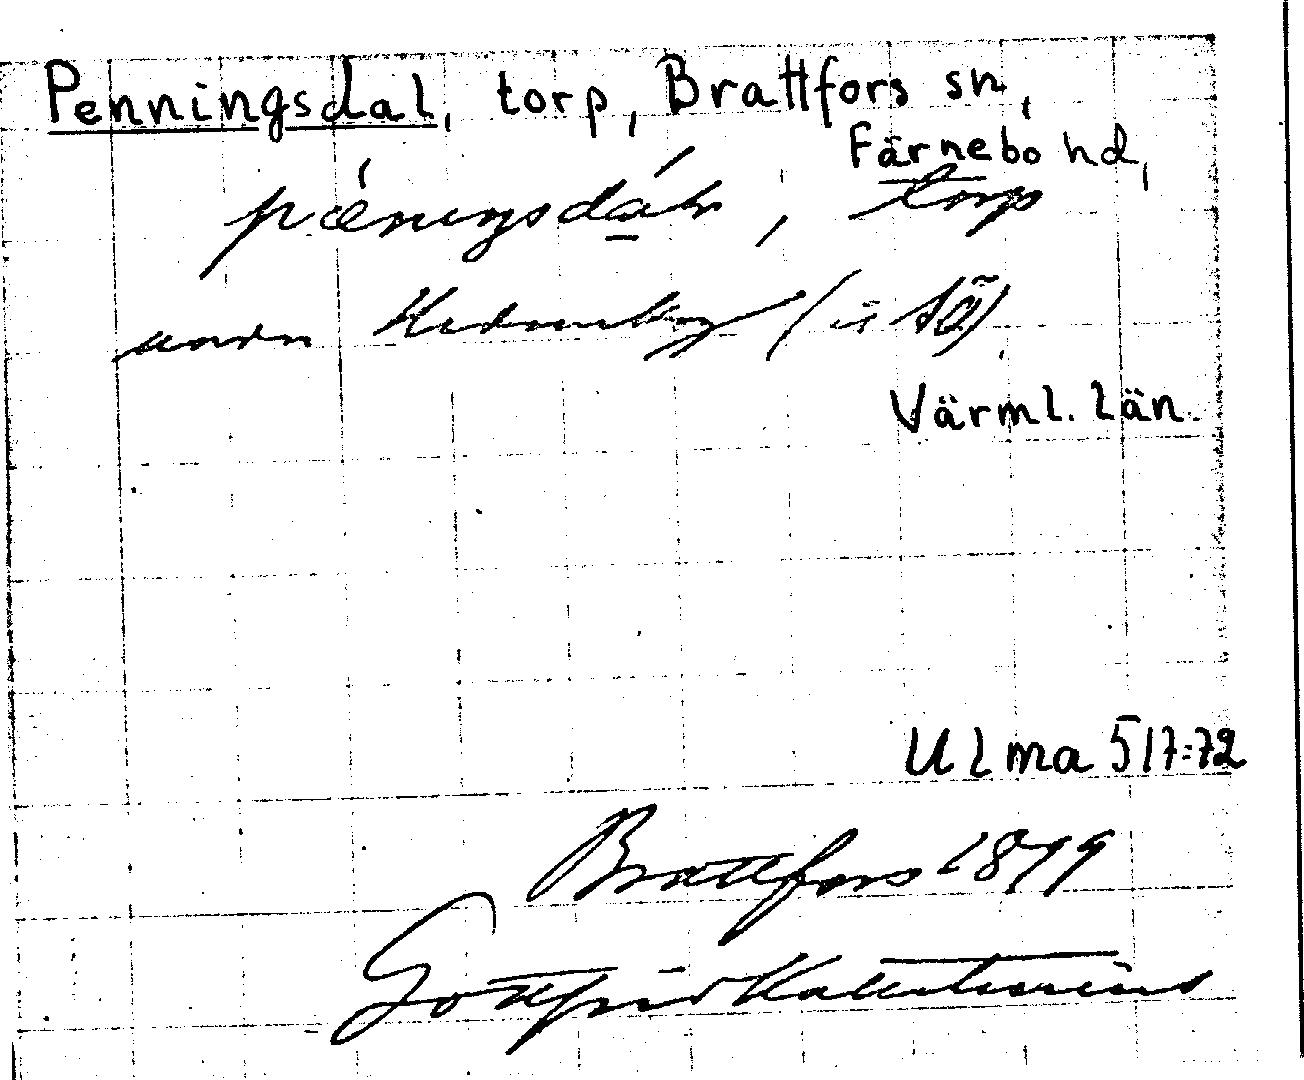 Penningsdal, torp, Brattfors sn,
Färnebo hd,
torp
under (i SÖ)
Värml. län.
Ulma 517:72
Brattfors 1879
Gottfrid Kallstenius